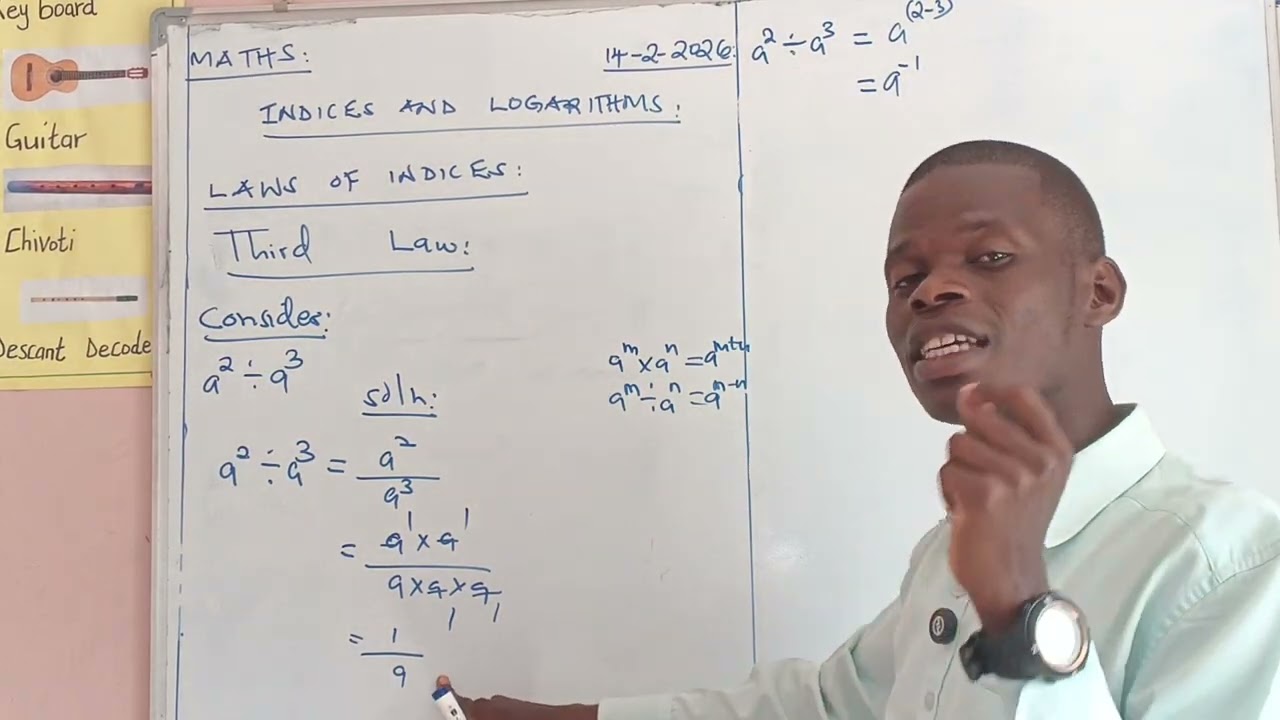 Key board
Guitar
Chivoti
Descant Decode
MATHS:
14-2-2026:
INDICES AND LOGARITHMS:
LAWS OF INDICES:
Third Law:
Consider:
a² ÷ a³
soln:
a² ÷ a³ = a²/a³
= a¹ × a¹ / a × a × a
1 1
= 1/a
aᵐ × aⁿ = aᵐ⁺ⁿ
aᵐ ÷ aⁿ = aᵐ⁻ⁿ
a² ÷ a³ = a⁽²⁻³⁾
= a⁻¹